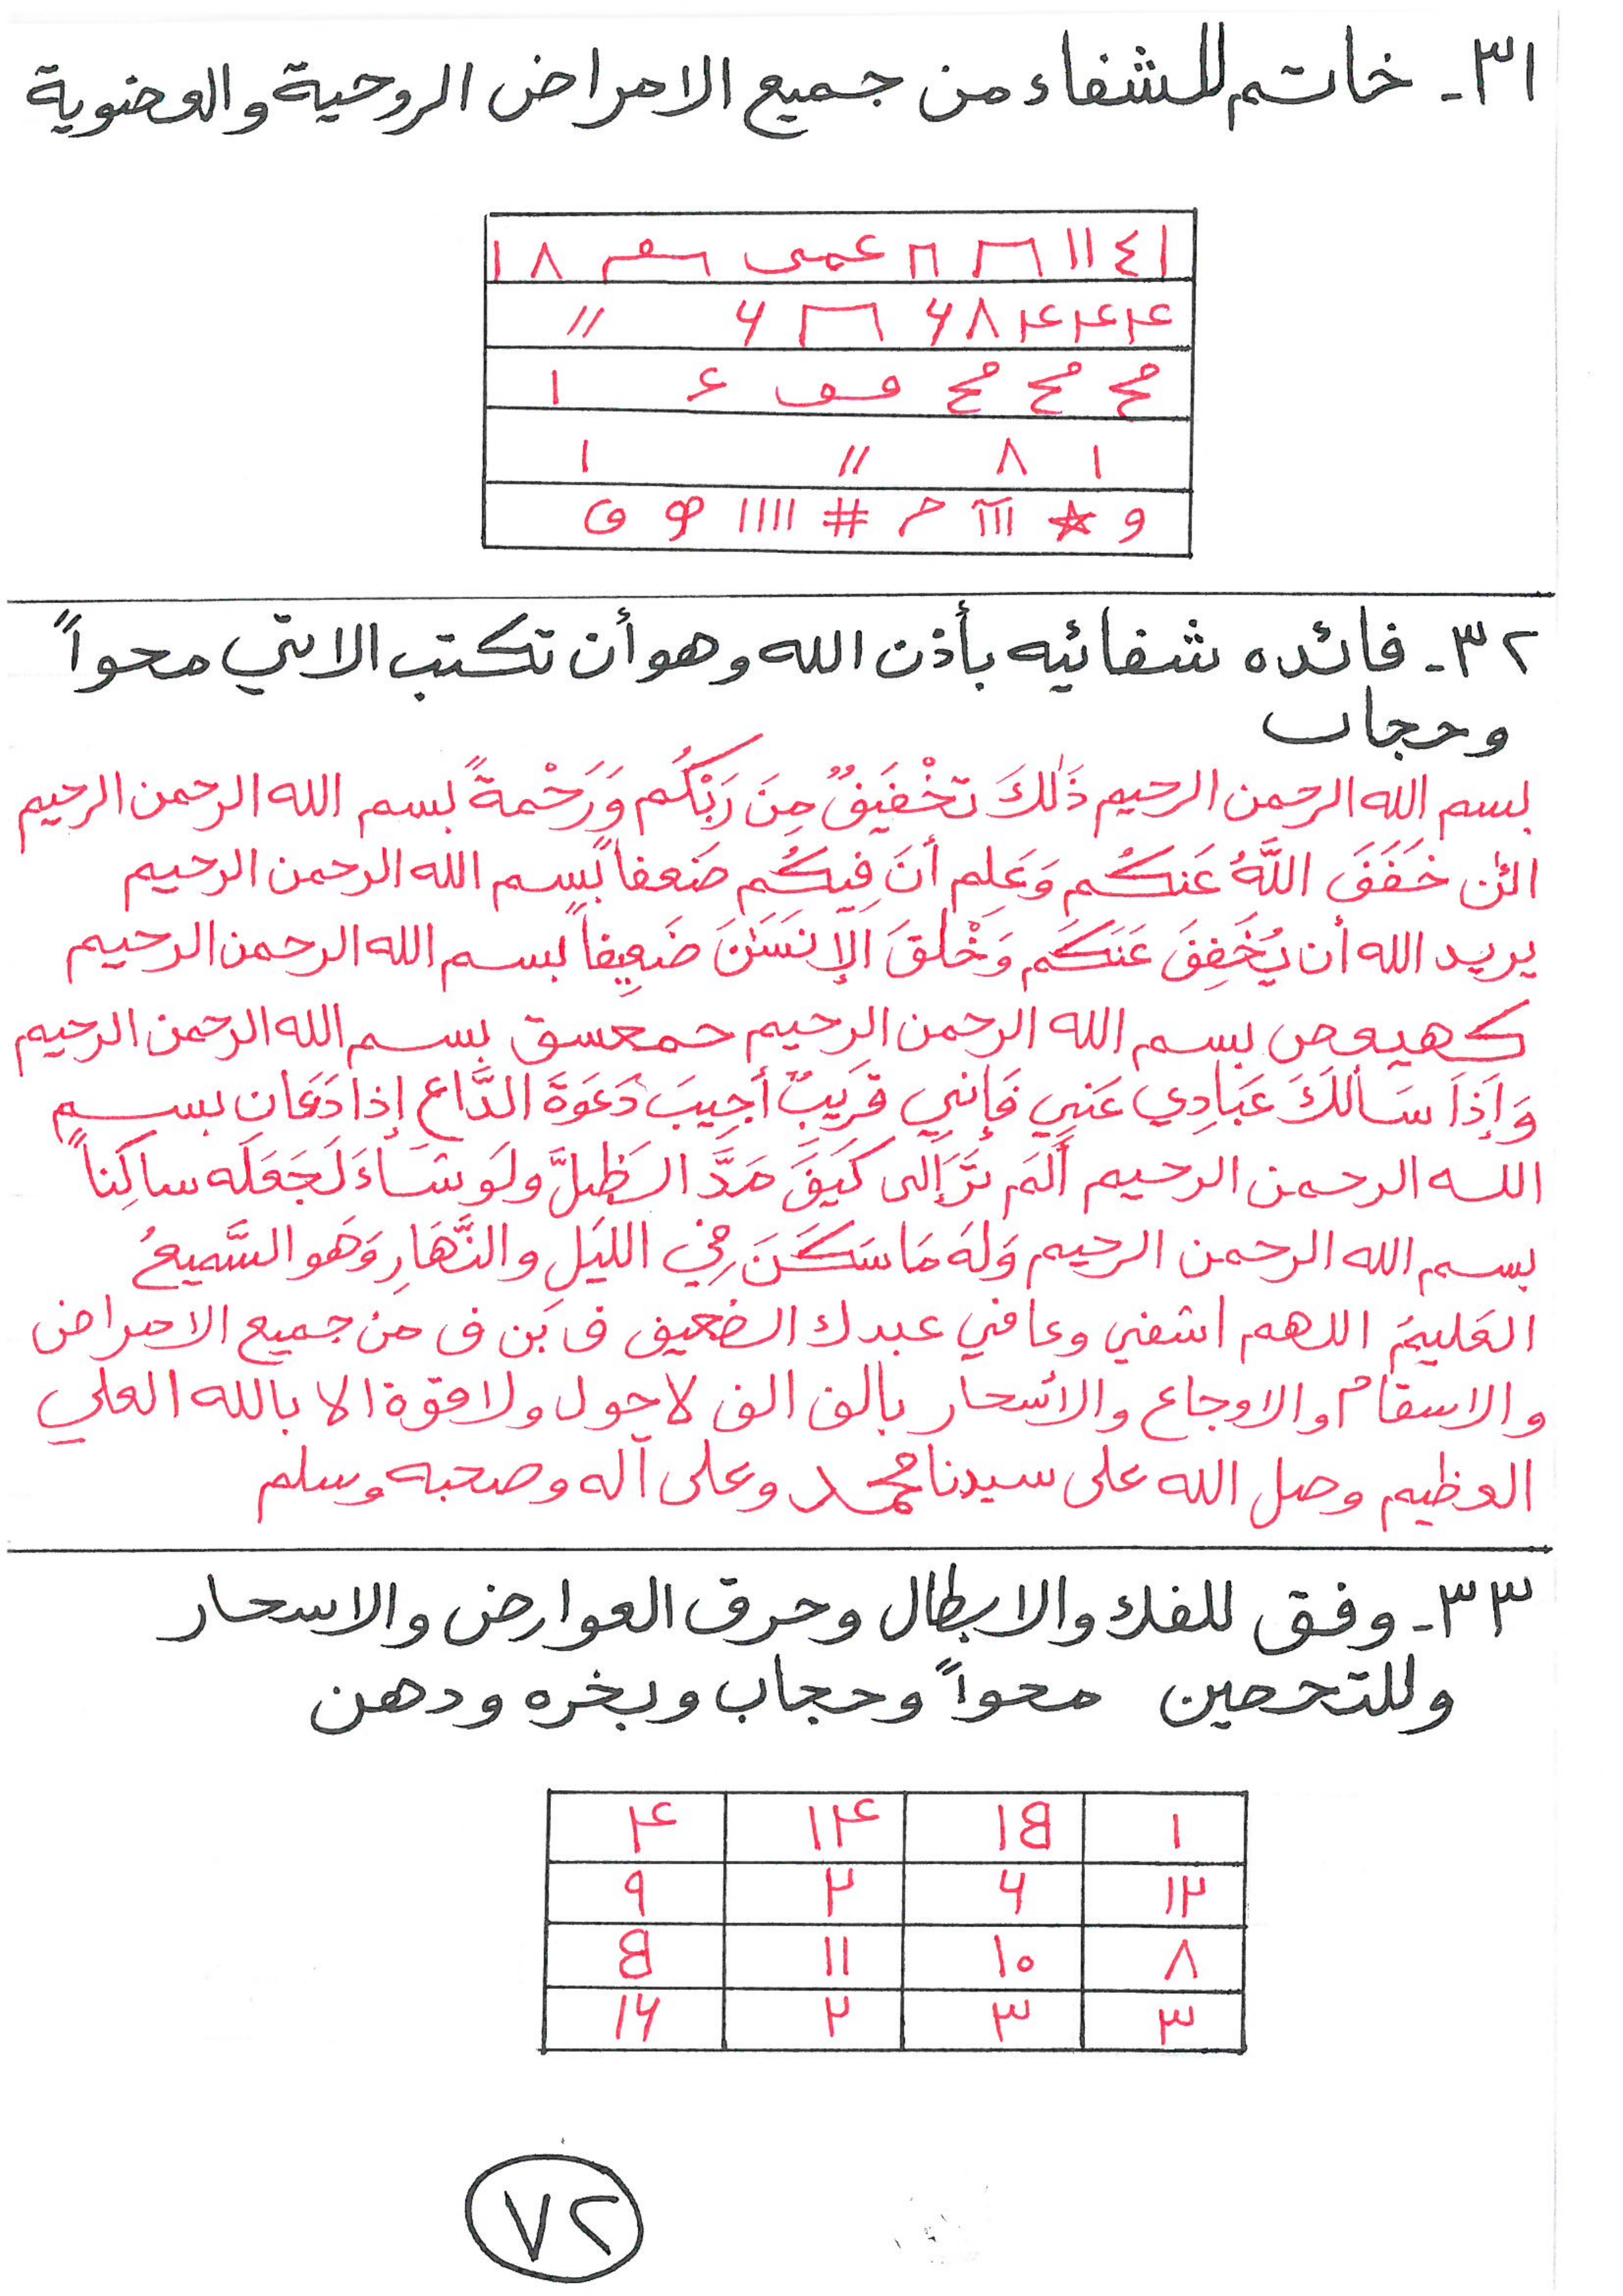 ٣١- خاتم للشفاء من جميع الامراض الروحية والعضوية
١ ٤ ١١ عمى سقم ٨ ١
۴ ۴ ۴ ٨ ۶ ۶ //
مح مح مح فف ء ١
١ ٨ // ١
و ★ ١١١ م # ١١١١ ھ ق
٣٢- فائده شفائيه بأذن الله وهو أن تكتب الاتي محواً
وحجاب
بسم الله الرحمن الرحيم ذَٰلكَ تخْفيَفٌ مِنَ رَبّكُم وَرَحْمةً بسم الله الرحمن الرحيم
الئٰن خفَفَ اللَّهُ عَنكُم وَعَلِم أنَ فِيكُم ضَعفاً بسم الله الرحمن الرحيم
يريد الله أن يُخَفِفَ عَنَكَم وَخْلقَ الإنسَٰنَ ضَعِيفاً بسم الله الرحمن الرحيم
كهيعص بسم الله الرحمن الرحيم حمعسق بسم الله الرحمن الرحيم
وَإذَا سَألَكَ عَبَادِي عَنِي فَإنِي قَرِيبٌ أجِيبَ دَعَوَةَ الدَّاع إذا دَعَان بسم
الله الرحمن الرحيم ألَم تَرَ إلى كَيَفَ مَدَّ الظِلَّ ولَو شَاءَ لَجَعَلَه ساكِناً
بسم الله الرحمن الرحيم وَلَهَ مَا سَكَنَ فِي الليَلِ والنَّهَارِ وَهَو السَّمِيعُ
العَليَمُ اللهم اشفني وعافي عبدك الضعيف ف بَن ف من جميع الامراض
والاسقام والاوجاع والأسحار بألف الف لاحول ولاقوة الا بالله العلي
العظيم وصل الله على سيدنا محمد وعلى آله وصحبه وسلم
٣٣- وفق للفك والابطال وحرق العوارض والاسحار
وللتحصين محواً وحجاب وبخره ودهن
١ ١٥ ١۴ ۴
١٢ ۶ ٢ ٩
٨ ١٠ ١١ ٥
٣ ٣ ٢ ١۶
٧٢